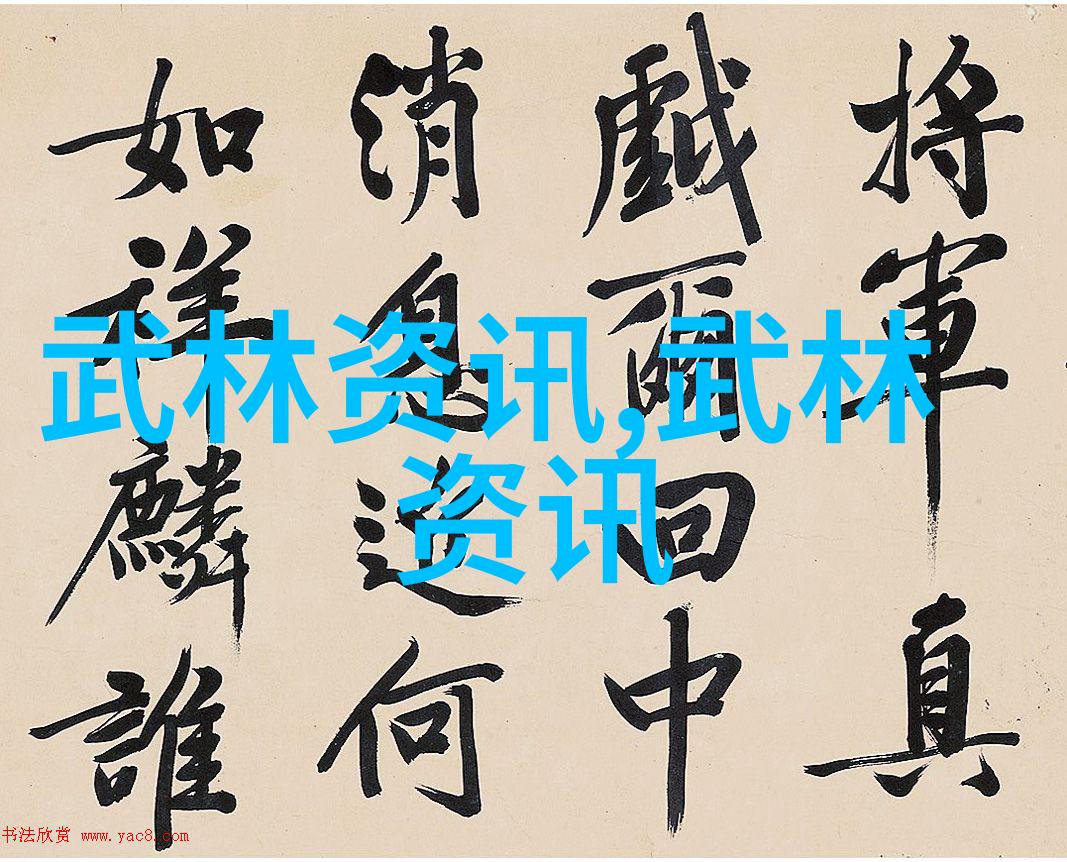 将軍真
戯爾回中
消息何
如祥麟誰
武林资讯,武林
资讯
书法欣赏 www.yac8.com